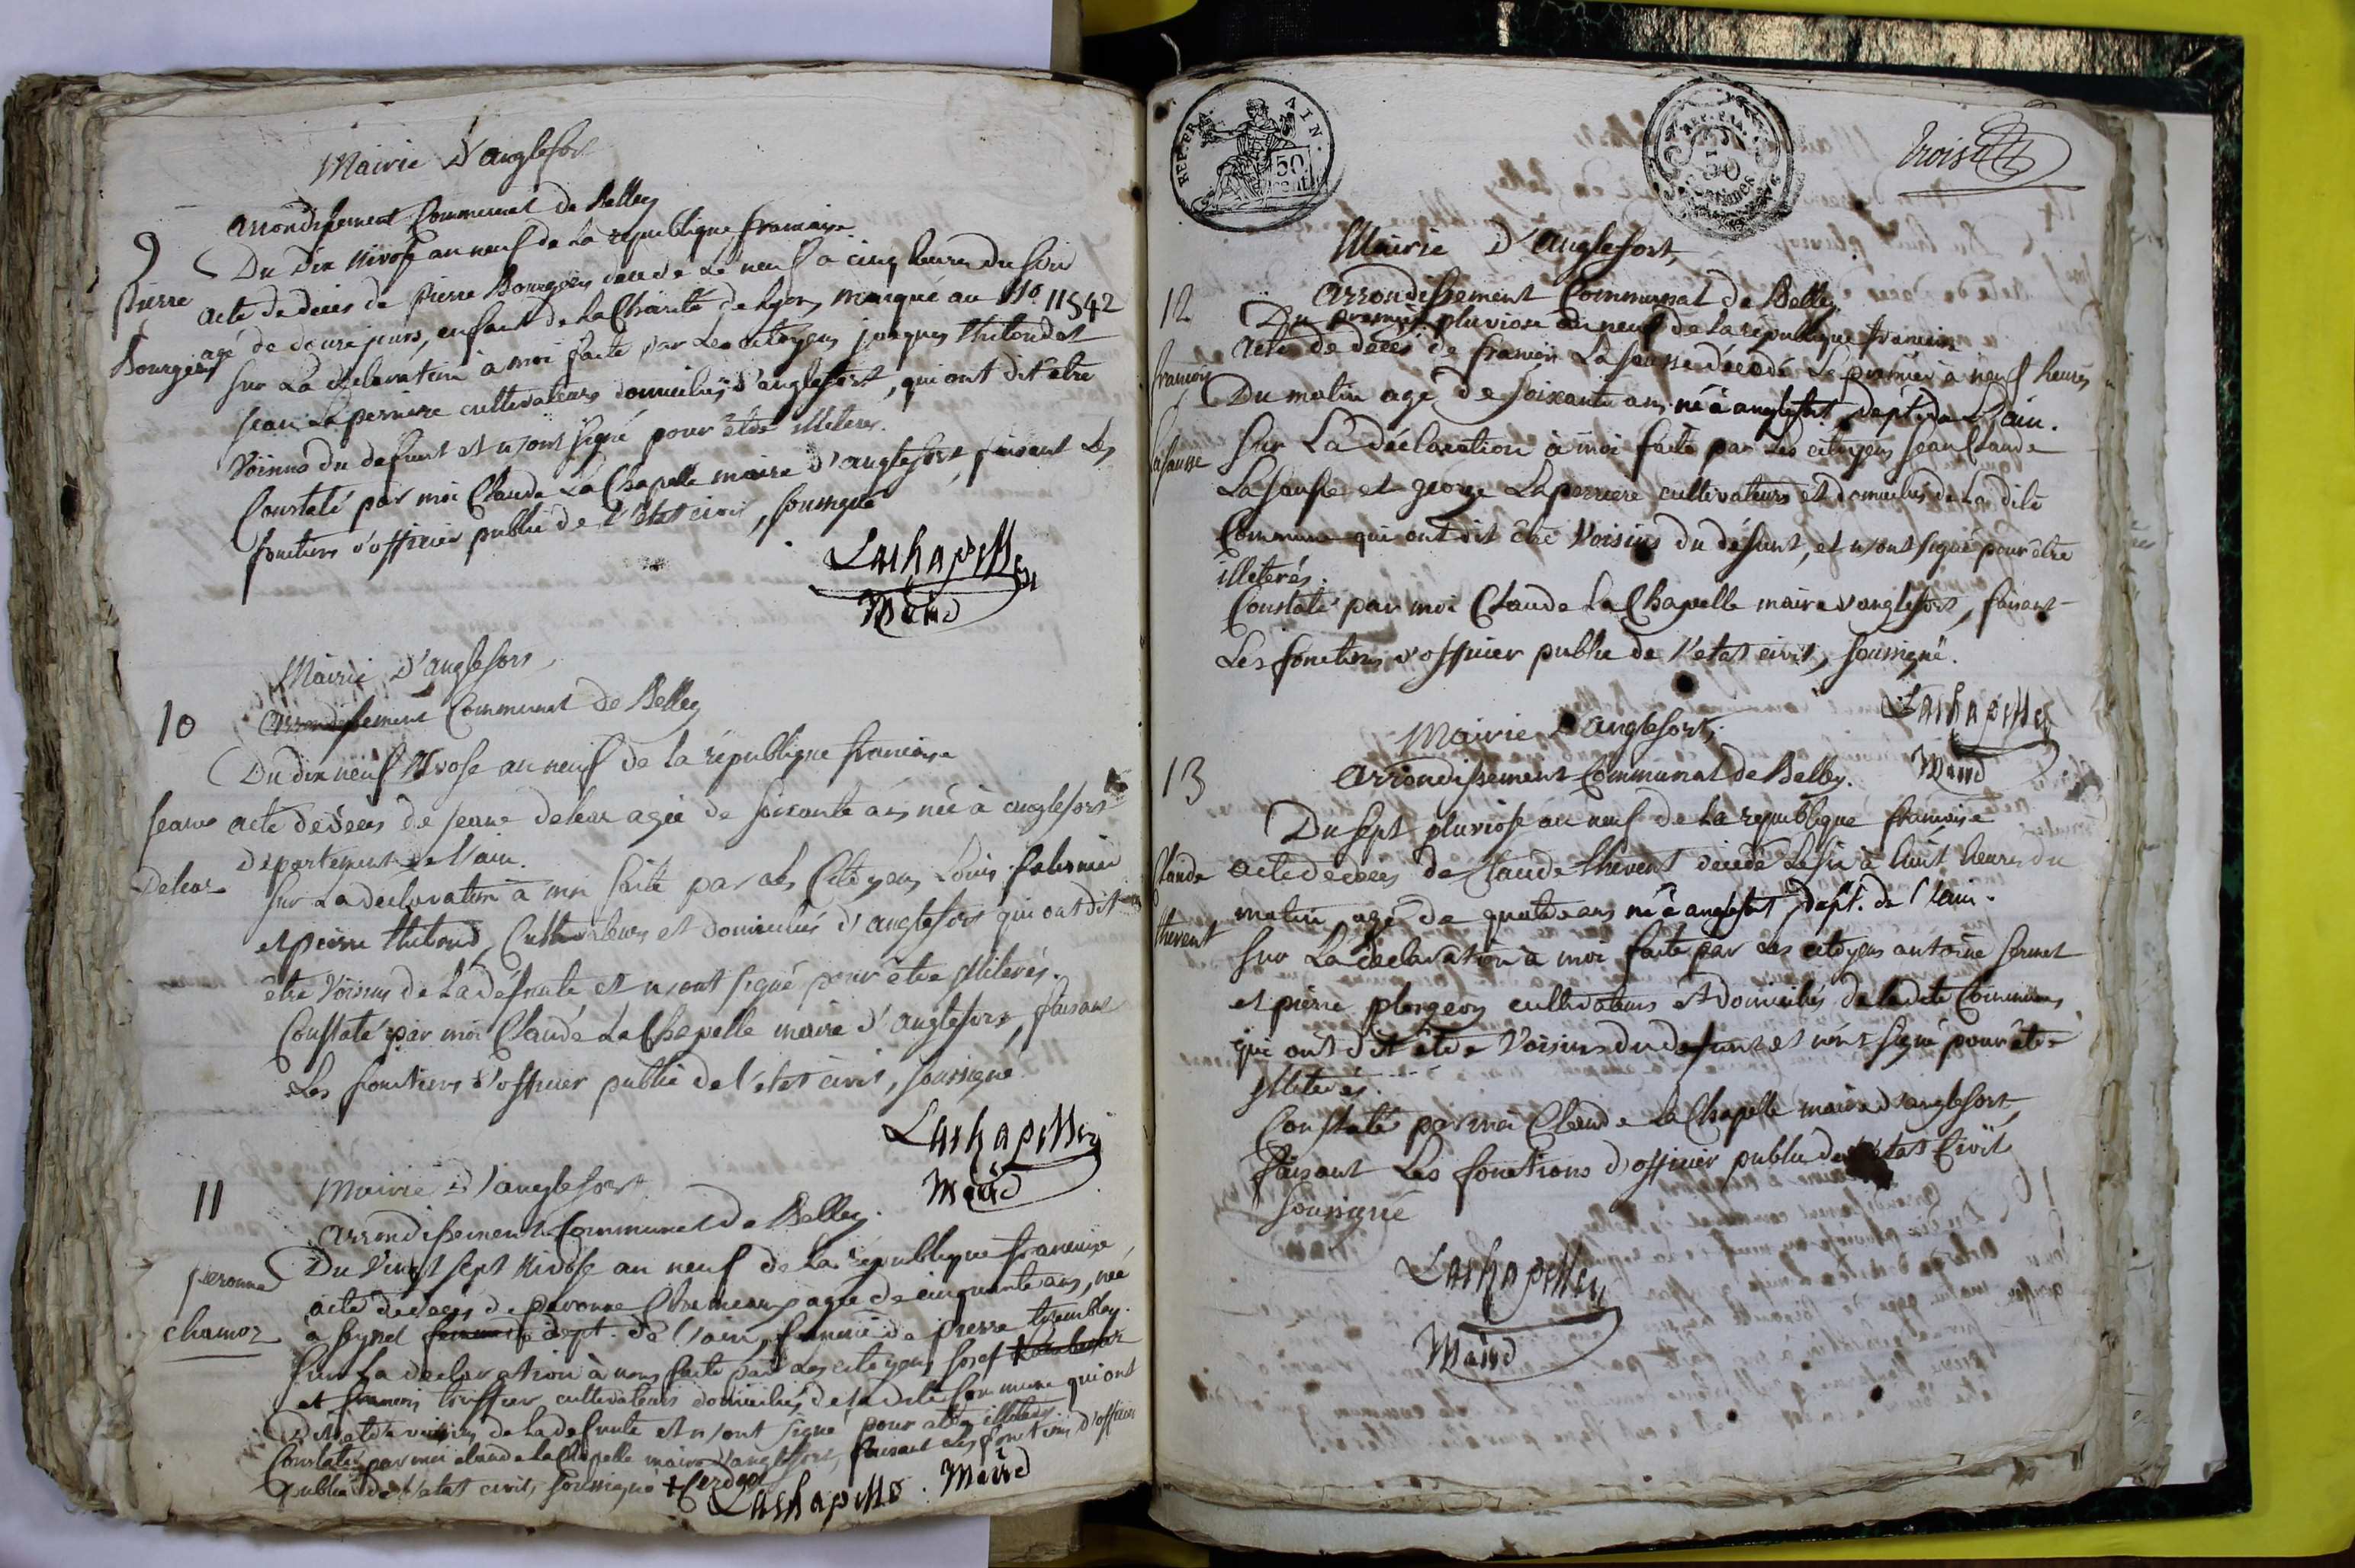 Mairie d'anglefort
arrondissement Communal de Belley
9
Du Dix Nivose an neuf de la république francaise
Pierre
Bourgeois
acte de deces de pierre Bourgeois décédé Le neuf a cinq heures du soir
agé de douze jours, enfant de la Charité de Lyon, marqué au No 11542
sur La déclaration à moi faite par Les citoyens jacques thitondet
jean Laperriere cultivateurs domiciliés d'anglefort, qui ont dit être
Voisins du defunt et n'ont signé pour être illiteres.
Constaté par moi Claude La Chapelle maire d'anglefort, faisant Les
fonctions d'officier public de l'état civil, soussigné
Lachapelle
Maire
Mairie d'anglefort
10
arrondissement Communal de Belley
Du dix neuf Nivose an neuf de la république francoise
jeanne
Deleaz
acte de deces de jeanne deleaz agée de soixante ans née à anglefort
département de l'ain.
sur La déclaration à moi faite par Les Citoyens Louis
et pierre thiboud, Cultivateurs et domiciliés d'anglefort qui ont dit
être Voisins de La défunte et n'ont signé pour être illiterés.
Constaté par moi Claude La Chapelle maire d'anglefort, faisant
Les fonctions d'officier public de l'etat civil, soussigné
Lachapelle
Maire
11
Mairie d'anglefort
arrondissement Communal de Belley.
Du Vingt sept Nivose an neuf de La république francoise
peronne
chamoz
acte de deces de peronne agée de cinquante ans, née
a seyssel femme de dept. de l'ain, femme de pierre trembley.
sur La declaration à nous faite par Les citoyens josef
et francois truffier cultivateurs domiciliés de la dite commune qui ont
dit etre voisins de La defunte et n'ont signé pour etre illiteres
Constaté par moi claude La Chapelle maire d'anglefort, faisant les fonctions d'officier
public de l'etat civil, soussigné + Cerdon
Lachapelle. Maire
REP. FRA. AIN.
50
cent.
REP. FRA.
50
centimes
trois
Mairie D'anglefort,
arrondissement Communal de Belley.
12
Du premier pluviose an neuf de la république francoise
francois
Lasausse
acte de décès de francois La sausse décédé Le premier à neuf heures
Du matin agé de soixante ans né à anglefort dept. de L'ain.
sur La déclaration à moi faite par Les citoyens jean Claude
Lasausse et george Laperriere cultivateurs et domiciliés de la dite
Commune qui ont dit être Voisins du défunt, et n'ont signé pour être
illiterés.
Constaté par moi Claude La Chapelle maire d'anglefort, faisant
Les fonctions d'officier public de l'etat civil, soussigné.
Lachapelle
Maire
Mairie D'anglefort,
13
arrondissement Communal de Belley.
Du sept pluviose an neuf de La république francoise
Claude
thevent
acte de deces de Claude thevent décédé Le six à huit heures du
matin agé de quatre ans né à anglefort, dept. de l'ain.
sur La déclaration à moi faite par Les citoyens antoine sermet
et pierre plorgeon cultivateurs et domiciliés de la dite Commune,
qui ont dit être Voisins du defunt et n'ont signé pour être
illiterés.
Constaté par moi Claude La Chapelle maire d'anglefort,
faisant Les fonctions d'officier public de l'etat Civil
soussigné
Lachapelle
Maire